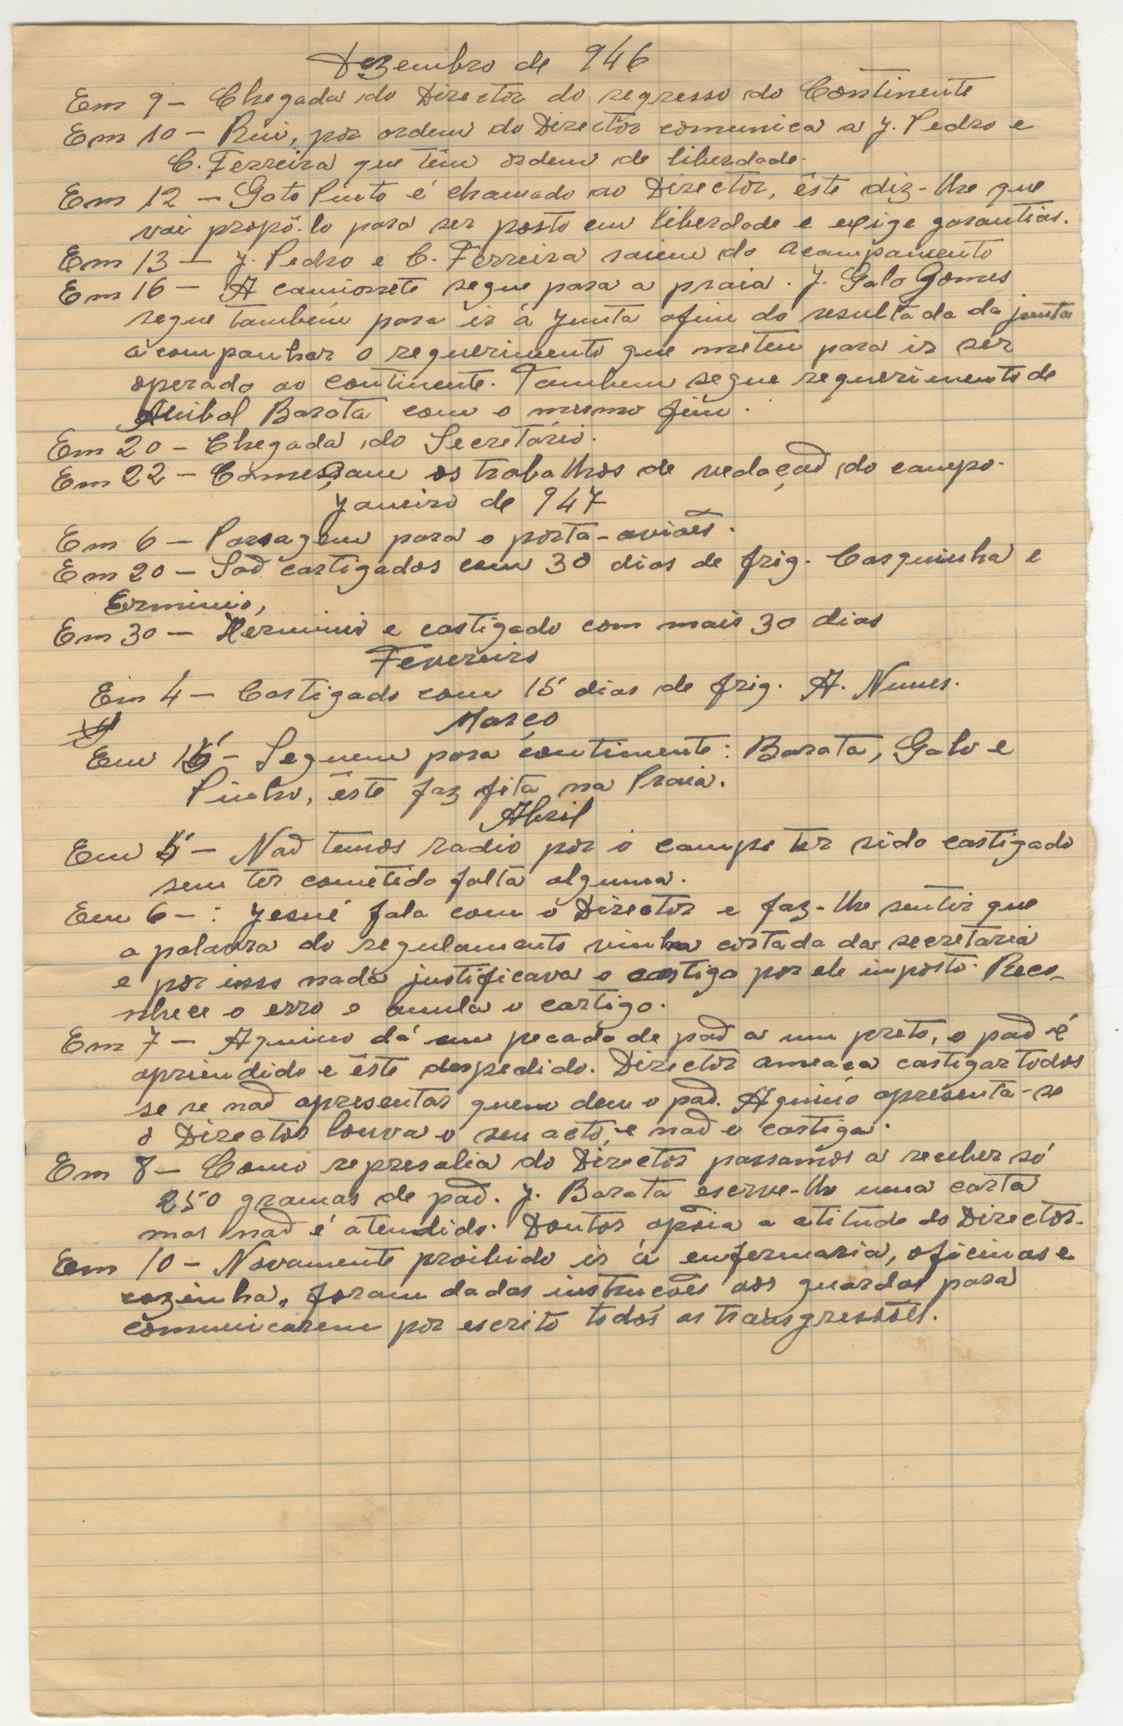 Dezembro de 946
Em 9 - Chegada do Director do regresso do Continente
Em 10 - Rui, por ordem do Director comunica a J. Pedro e
C. Ferreira que têm ordem de liberdade.
Em 12 - Gato Pinto é chamado ao Director, êste diz-lhe que
vai propô-lo para ser posto em liberdade e exige garantias.
Em 13 - J. Pedro e C. Ferreira saiem do acampamento
Em 16 - A camionete segue para a praia. J. Galo Gomes
segue também para ir á junta afim do resultado da junta
acompanhar o requerimento que meteu para ir ser
operado ao continente. Tambem segue requerimento de
Anibal Barata com o mesmo fim.
Em 20 - Chegada do Secretário.
Em 22 - Começam os trabalhos de vedação do campo.
Janeiro de 947
Em 6 - Passagem para o porta-aviões.
Em 20 - São castigados com 30 dias de frig. Casquinha e
Erminio,
Em 30 - Herminio e castigado com mais 30 dias
Fevereiro
Em 4 - Castigado com 15 dias de frig. A. Nunes.
Março
Em 15 - Seguem para continente: Barata, Galo e
Pinho, êste faz fita na Praia.
Abril
Em 5 - Não temos radio por o campo ter sido castigado
sem ter cometido falta alguma.
Em 6 - : Josué fala com o Director e faz-lhe sentir que
a palavra do regulamento vinha cortada da secretaria
e por isso nada justificava o castigo por ele imposto. Reco-
nhece o erro e anula o castigo.
Em 7 - Aquino dá um pecado de pão a um preto, o pão é
apriendido e êste despedido. Director ameaça castigar todos
se se não apresentar quem deu o pão. Aquino apresenta-se
o Director louva o seu acto, e não o castiga.
Em 8 - Como represalia do Director passamos a receber só
250 gramas de pão. J. Barata escrve-lhe uma carta
mas não é atendido. Doutor apoia a atitude do Director.
Em 10 - Novamente proibido ir á enfermaria, oficinas e
cozinha, foram dadas instruções aos guardas para
comunicarem por escrito todos as transgressões.